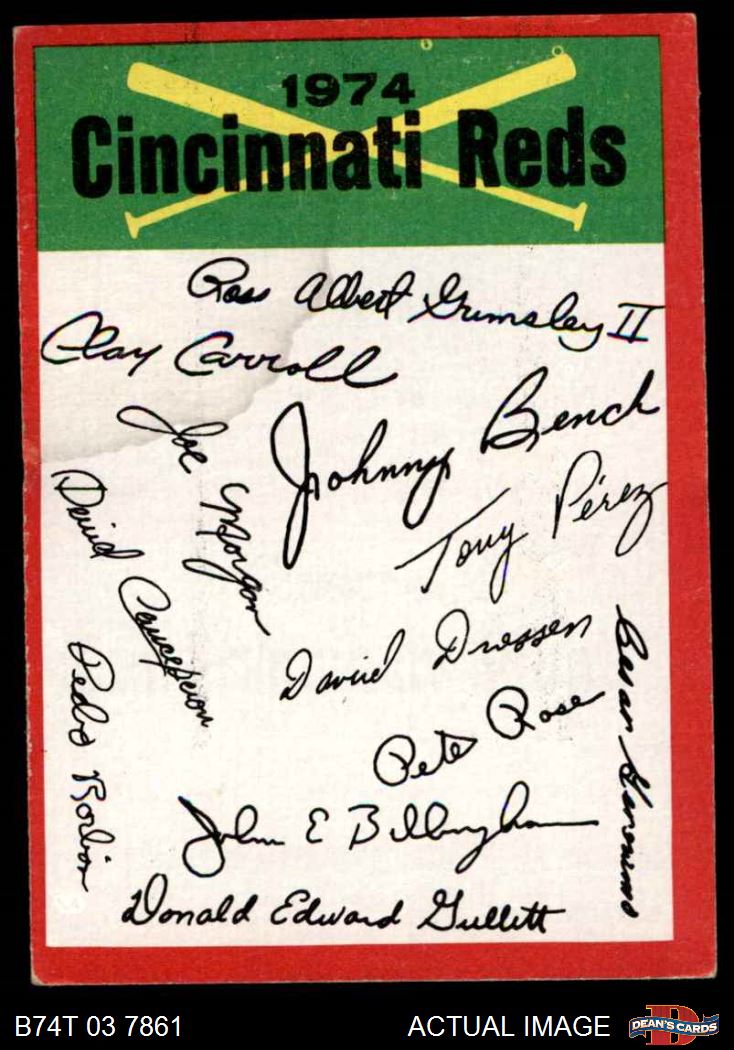 1974
Cincinnati Reds
Ross Albert Grimsley II
Clay Carroll
Johnny Bench
Joe Morgan
Tony Pérez
David Concepcion
David Driessen
Cesar Geronimo
Pedro Borbon
Pete Rose
John E Billingham
Donald Edward Gullett
B74T 03 7861
ACTUAL IMAGE
DEAN'S CARDS